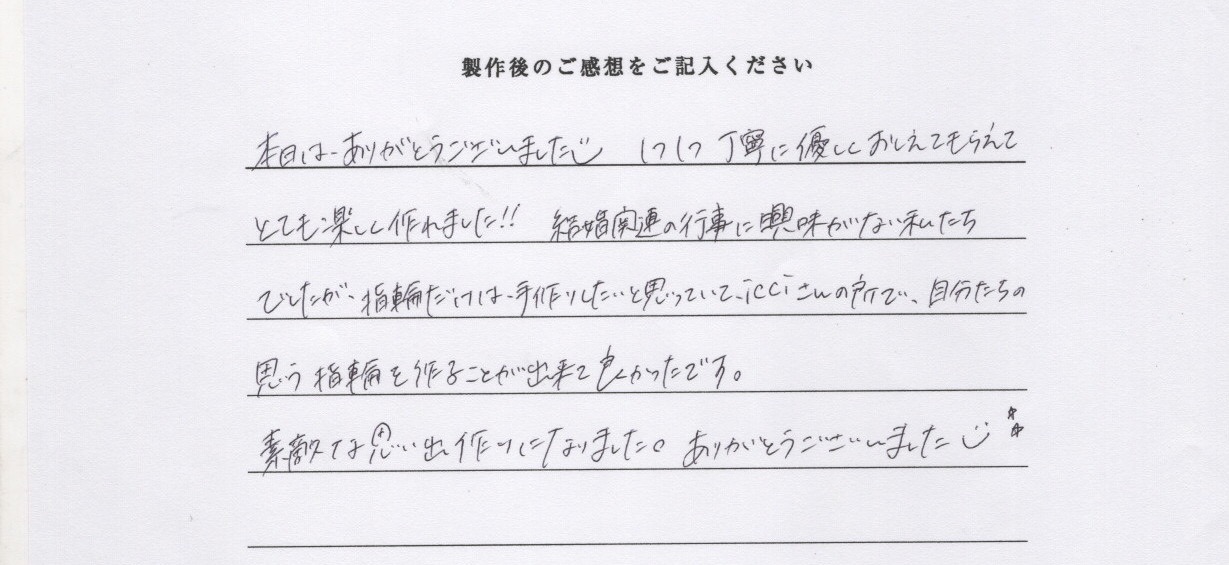 製作後のご感想をご記入ください
本日は、ありがとうございました 1つ1つ丁寧に優しくおしえてもらえて
とても楽しく作れました!! 結婚関連の行事に興味がない私たち
でしたが、指輪だけは、手作りしたいと思っていて、icciさんの所で、自分たちの
思う指輪を作ることが出来て良かったです。
素敵な思い出作りになりました。ありがとうございました